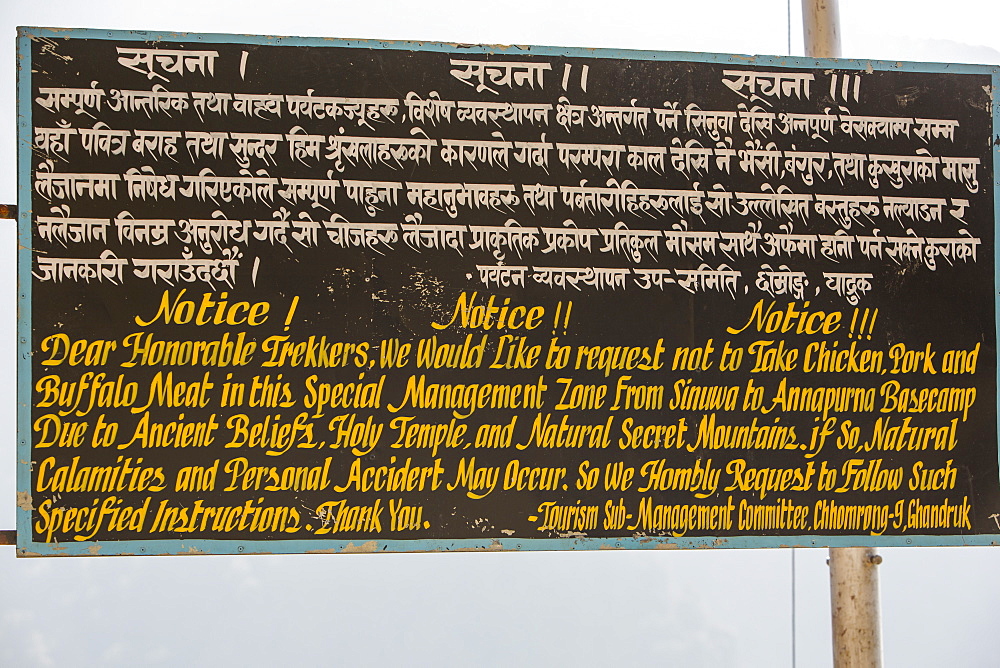 सूचना । सूचना ।। सूचना ।।।
सम्पूर्ण आन्तरिक तथा वाह्य पर्यटकज्यूहरु, विशेष व्यवस्थापन क्षेत्र अन्तर्गत पर्ने सिनुवा देखि अन्नपूर्ण वेसक्याम्प सम्म
वहाँ पवित्र बराह तथा सुन्दर हिम श्रृंखलाहरुको कारणले गर्दा परम्परा काल देखि नै भैंसी, बंगुर, तथा कुखुराको मासु
लैजानमा निषेध गरिएकोले सम्पूर्ण पाहुना महानुभावहरु तथा पर्वतारोहिहरुलाई सो उल्लेखित वस्तुहरु नल्याउन र
नलैजान विनम्र अनुरोध गर्दै सो चीजहरु लैजादा प्राकृतिक प्रकोप प्रतिकुल मौसम साथै अफैमा हानी पर्न सक्ने कुराको
जानकारी गराउँदछौं । - पर्यटन व्यवस्थापन उप-समिति, छोम्रोङ्ग, घान्द्रुक
Notice ! Notice !! Notice !!!
Dear Honorable Trekkers, We Would Like to request not to Take Chicken, Pork and
Buffalo Meat in this Special Management Zone From Sinuwa to Annapurna Basecamp
Due to Ancient Beliefs, Holy Temple, and Natural Secret Mountains. if So, Natural
Calamities and Personal Accidert May Occur. So We Hombly Request to Follow Such
Specified Instructions. Thank You. -Tourism Sub-Management Committee, Chhomrong-9, Ghandruk